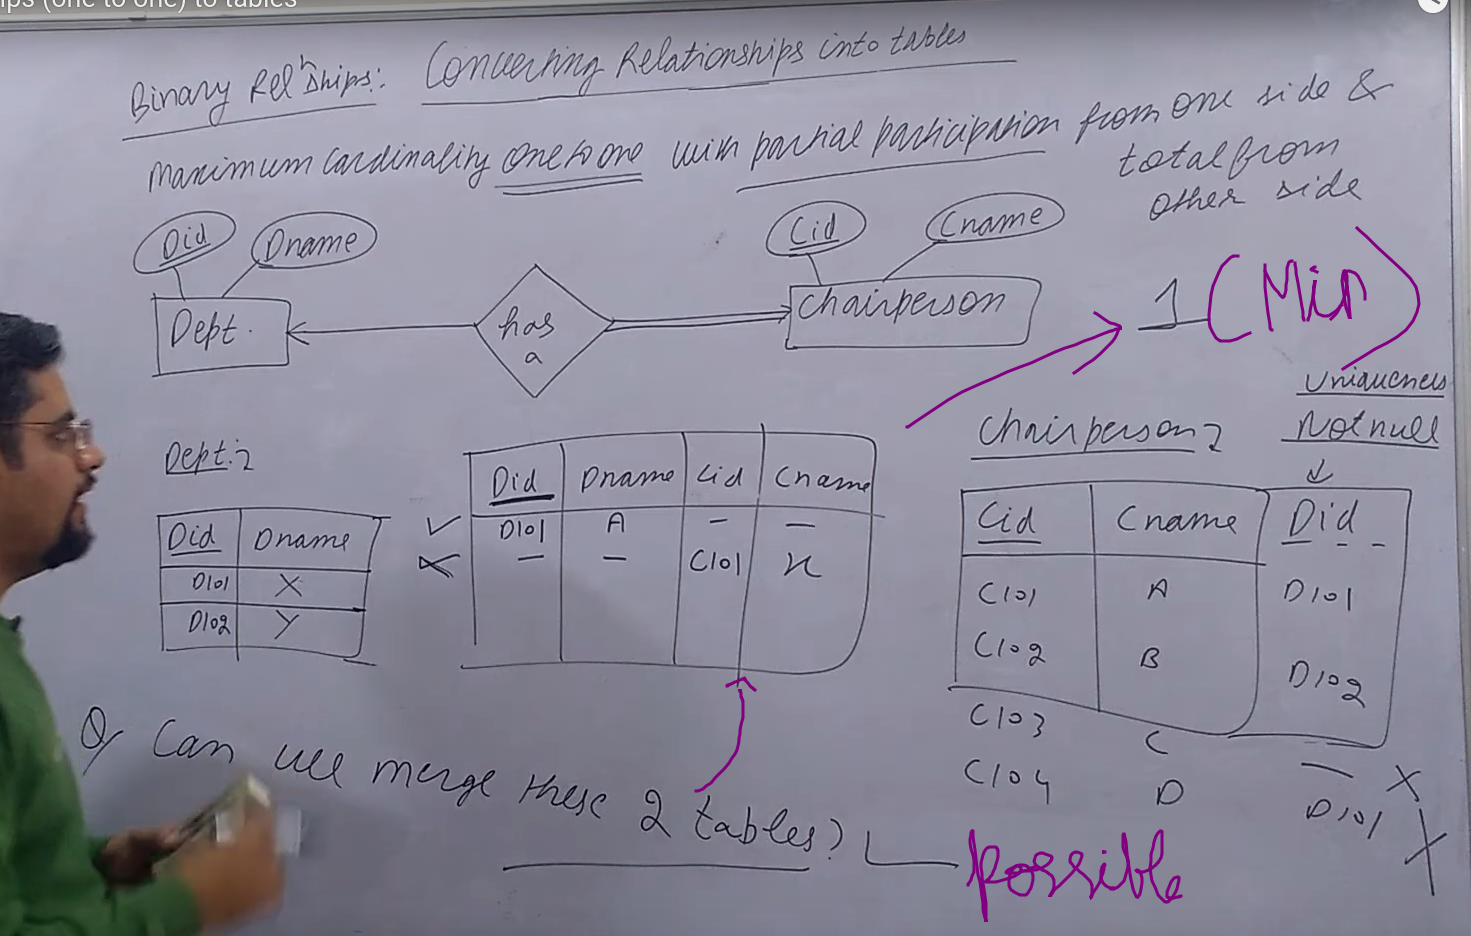 ips (one to one) to tables
Binary Relnships: Converting Relationships into tables
Maximum cardinality one to one with partial participation from one side &
total from
other side
Did
Dname
Cid
Cname
Dept.
has
a
Chairperson
1 (Min)
Uniqueness
Not null
Dept:-
Did Dname
D101 X
D102 Y
Did Dname Cid Cname
✓ D101 A — —
× — — C101 x
Chairperson
Cid Cname Did
C101 A D101
C102 B D102
C103 C — X
C104 D D101 X
Q/ Can we merge these 2 tables?
possible